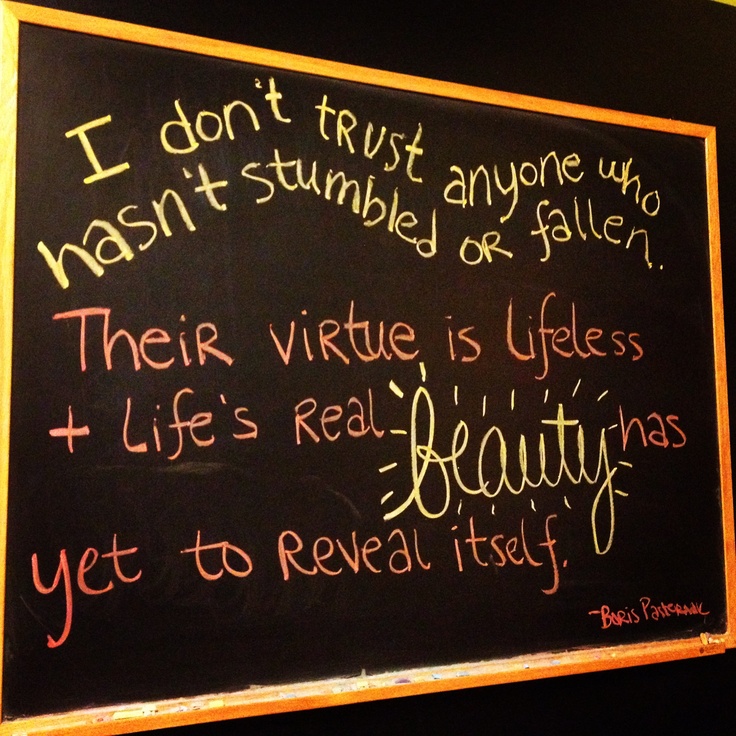 I don't tRUSt anyone who
hasn't stumbled OR fallen.
TheiR viRtue is lifeless
+ life's Real beauty has
yet to Reveal itself.
-Boris Pasternak